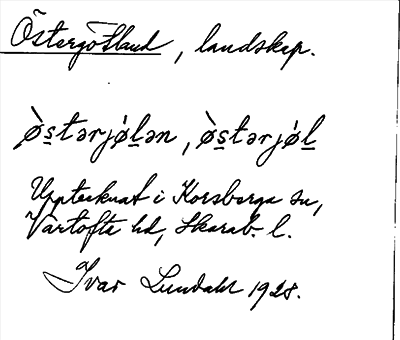 Östergötland, landskap.
ø̀s̲tərjø̀l̲ən, ø̀s̲tərjø̀l̲
Upptecknat i Korsberga sn,
Vartofta hd, Skarab. l.
Ivar Lundahl 1928.